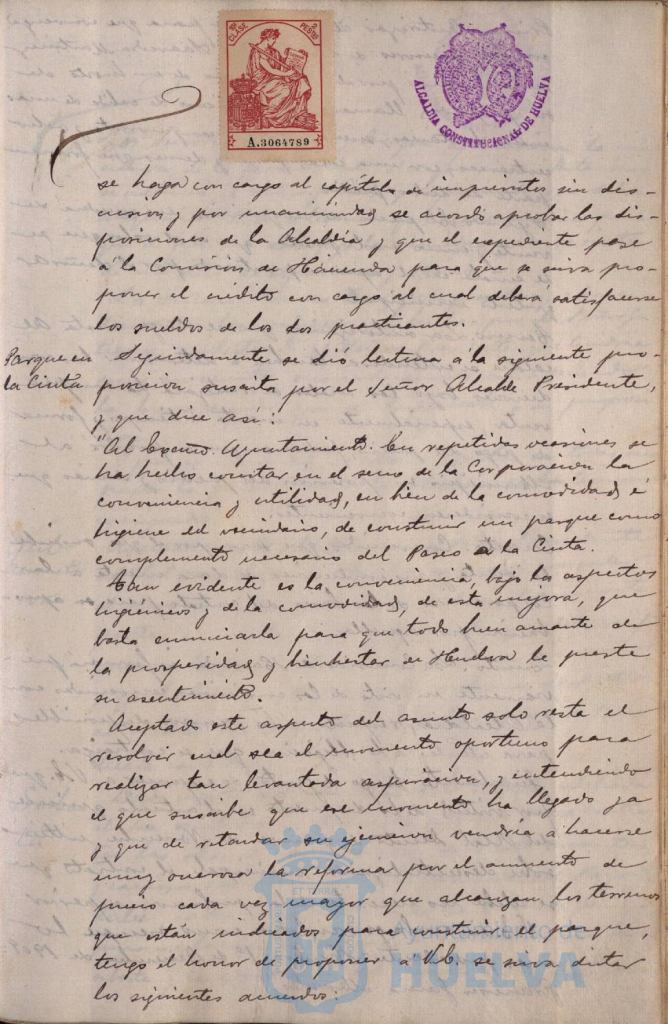 10ª CLASE
2 PESETAS
A.3064789
ALCALDIA CONSTITUCIONAL DE HUELVA
se haga con cargo al capítulo de imprevistos sin dis-
cusion y por unanimidad se acordó aprobar las dis-
posiciones de la Alcaldía y que el expediente pase
á la Comision de Hacienda para que se sirva pro-
poner el crédito con cargo al cual deberá satisfacerse
los sueldos de los dos practicantes.
Parque en
la Cinta
Seguidamente se dió lectura á la siguiente pro-
posicion suscrita por el Señor Alcalde Presidente,
y que dice así:
"Al Excmo. Ayuntamiento. En repetidas ocasiones se
ha hecho constar en el seno de la Corporacion la
conveniencia y utilidad, en bien de la comodidad é
higiene del vecindario, de construir un parque como
complemento necesario del Paseo á la Cinta.
Tan evidente es la conveniencia, bajo los aspectos
higiénicos y de la comodidad, de esta mejora, que
basta enunciarla para que todo buen amante de
la prosperidad y bienhestar de Huelva le preste
su asentimiento.
Aceptado este aspecto del asunto solo resta el
resolver cual sea el momento oportuno para
realizar tan levantada aspiracion, y entendiendo
el que suscribe que ese momento ha llegado ya
y que de retardar su ejecucion vendría á hacerse
muy onerosa la reforma por el aumento de
precio cada vez mayor que alcanzan los terrenos
que están indicados para construir el parque,
tengo el honor de proponer á V.E. se sirva dictar
los siguientes acuerdos:
Ayuntamiento de
HUELVA